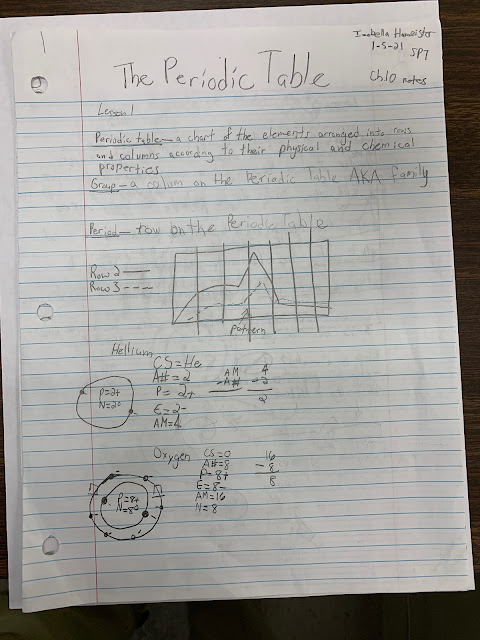 1
Isabella
1-5-21
SP7
The Periodic Table
Ch10 notes
Lesson 1
Periodic table — a chart of the elements arranged into rows
and columns according to their physical and chemical
properties
Group — a colum on the Periodic Table AKA family
Period — row on the Periodic Table
Row 2 ——
Row 3 - - -
pattern
Hellium
CS=He
A#=2
P=2+
E=2-
AM=4
P=2+
N=2°
AM 4
-A# -2
2
Oxygen
CS=O
A#=8
P=8+
E=8-
AM=16
N=8
16
-8
8
P=8+
N=8°